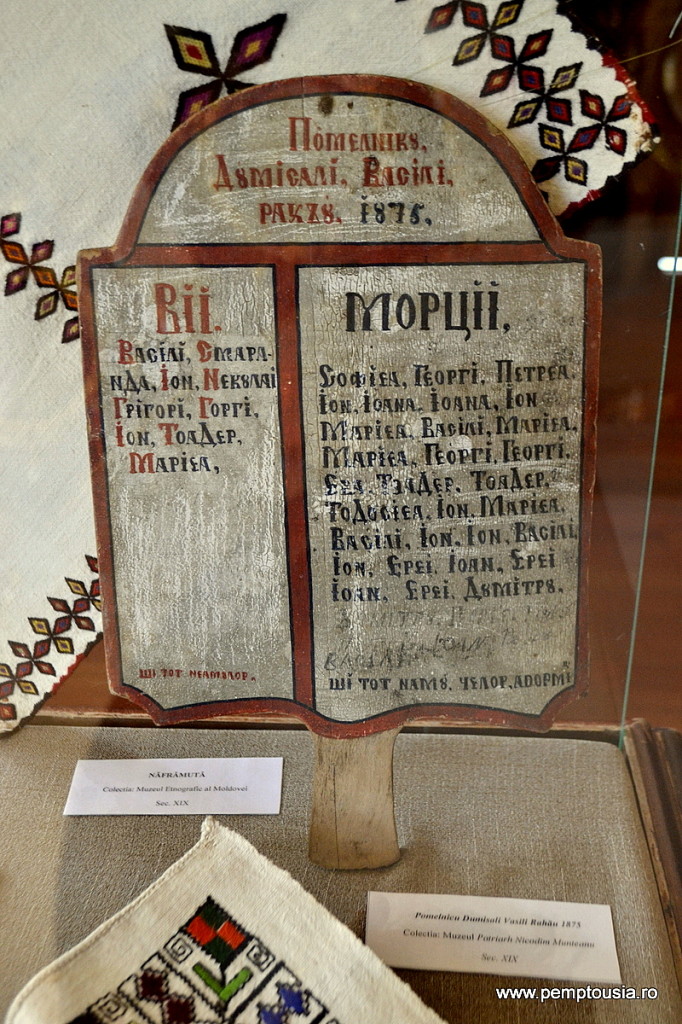 Помєлнікꙋ,
Дꙋмісалї, Васілі,
рахъꙋ. 1875.
Вїї.
Васілі, Смара-
нда, Іон, Некꙋлаі
Грігорі, Горгі,
Іон, Тоадер,
Маріεа,
ші тот. неамꙋлор.
Морції,
Софіεа, Георгі, Петреа,
Іон, Іоана, Іоана, Іон
Маріεа, Васілі, Маріεа,
Маріεа, Георгі, Георгі,
Тоадер, Тоадер,
Тодосіεа, Іон, Маріεа,
Васілі, Іон, Іон, Васілі,
Іон, Ереі, Іоан, Ереі
Іоан, Ереі, Дꙋмітрꙋ,
ші тот намꙋ, челор, адормі
NĂFRĂMUȚĂ
Colecția: Muzeul Etnografic al Moldovei
Sec. XIX
Pomelnicu Dumisali Vasili Rahău 1875
Colecția: Muzeul Patriarh Nicodim Munteanu
Sec. XIX
www.pemptousia.ro